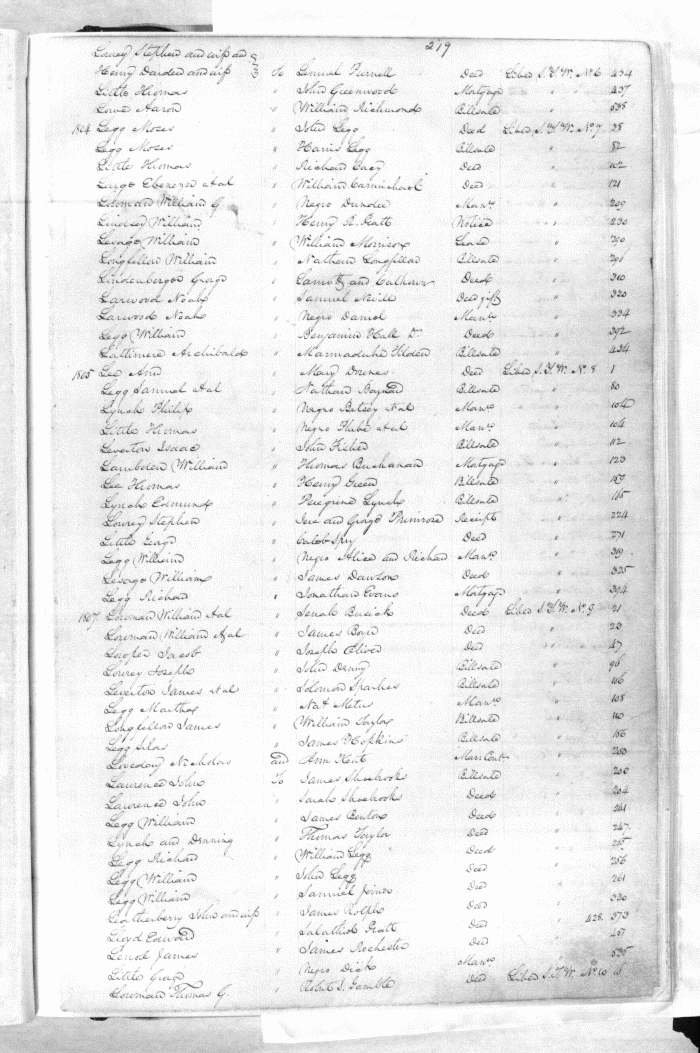 219
Lowrey Stephen and wife and
Henry Darden and wife to Lemuel Purnell Deed Liber S.T.W. No 6 434
Little Thomas " John Greenwood Mortgage " 437
Lowe Aaron " William Richmond Billsale " 538
1804 Legg Moses " John Legg Deed Liber S.T.W. No 7 38
Legg Moses " Harris Legg Billsale " 82
Little Thomas " Richard Deed " 102
Ebenezer & al " William Carmichael Deed " 121
William G. " Negro Dundee Manu. " 209
Lindsey William " Henry R. Pratt Notice " 230
Lesage William " William Morrison Lease " 290
Longfellow William " Nathan Longfellow Billsale " 296
Lindenberger George " and Calhoun Deed " 310
Larwood Noah " Samuel Neill Deed gift " 320
Larwood Noah " Negro Daniel Manu. " 334
Legg William " Benjamin Hall Deed " 392
Lattimere Archibald " Marmaduke Tilden Billsale " 434
1805 Lee Ann " Mary Downes Deed Liber S.T.W. No 8 1
Legg Samuel & al " Nathan Baynard Billsale " 80
Lynch Philip " Negro Betsey & al Manu. " 104
Little Thomas " Negro Phebe & al Manu. " 104
Leverton Isaac " John Fisher Billsale " 112
Lambden William " Thomas Buchanan Mortgage " 123
Lee Thomas " Henry Green Billsale " 159
Lynch Edmund " Peregrine Lynch Billsale " 165
Lowrey Stephen " and George Primrose Receipt " 224
Little George " Caleb Spry Deed " 271
Legg William " Negro Alice and Richard Manu. " 319
Lesage William " James Dawson Deed " 335
Legg Richard " Jonathan Evans Mortgage " 394
1807 Loreman William & al " Sarah Busick Deed Liber S.T.W. No 9 21
Loreman William & al " James Boyd Deed " 23
Looper Jacob " Joseph Oliver Deed " 47
Lowrey Joseph " John Drury Billsale " 96
Leverton James & al " Solomon Sparkes Billsale " 106
Legg Martha " Nat Metus Manu. " 108
Longfellow James " William Saylor Billsale " 110
Legg Silas " James Hopkins Billsale " 166
Loveday Nicholas and Ann Kent Marr. Cont. " 200
Laurence John to James Shoebrooks Billsale " 203
Laurence John " Sarah Shoebrooks Deed " 204
Legg William " James Benton Deed " 261
Lynch and Downing " Thomas Taylor Deed " 247
Legg Richard " William Legg Deed " 255
Legg William " John Legg Deed " 256
Legg William " Samuel Joiner Deed " 261
Leatherberry John and wife " James Rolph Deed " 330
Lloyd Edward " Salathiel Pratt Deed 428. 373
Lenox James " James Rochester Deed "
Little George " Negro Dick Manu. " 535
Loreman Thomas G. " Robert S. Gamble Deed Liber S.T.W. No 10 10